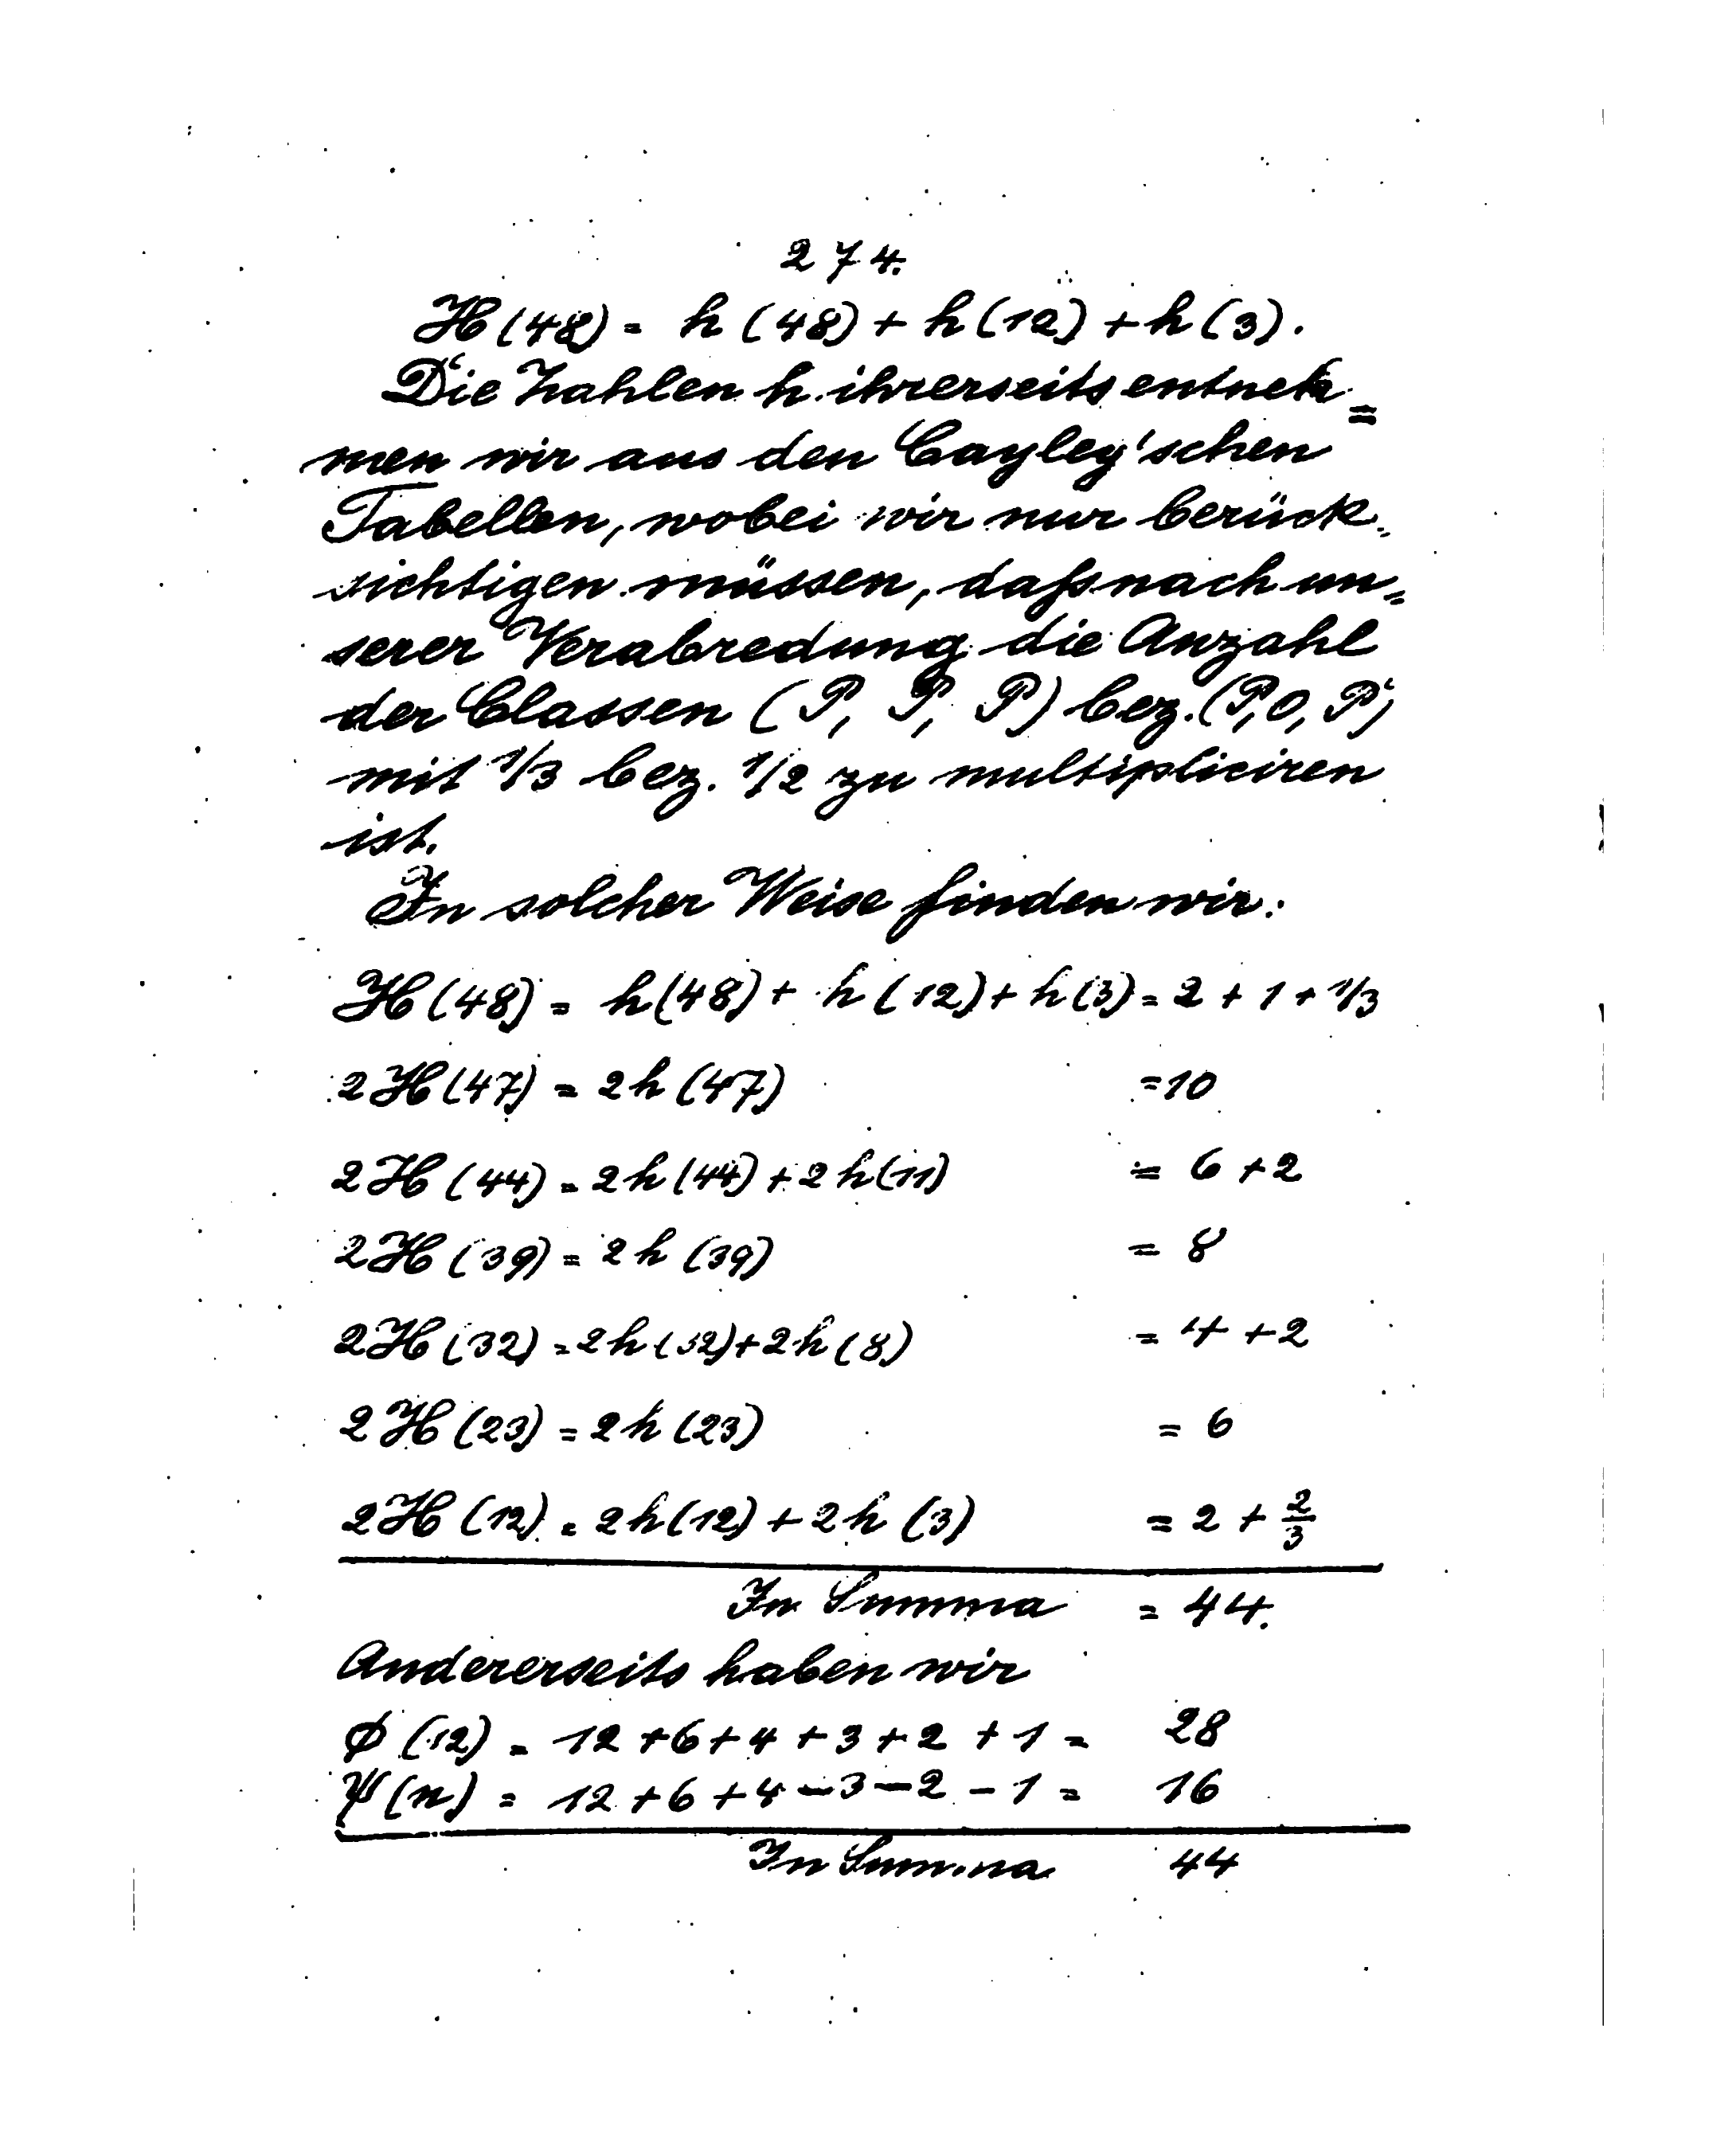 274.
H(48) = h(48) + h(12) + h(3).
Die Zahlen h ihrerseits entneh=
men wir aus den Cayley'schen
Tabellen, wobei wir nur berück=
sichtigen müssen, daß nach un=
serer Verabredung die Anzahl
der Classen (P, P, P) bez. (P, 0, P)
mit 1/3 bez. 1/2 zu multipliciren
ist.
In solcher Weise finden wir:
H(48) = h(48) + h(12) + h(3) = 2 + 1 + 1/3
2H(47) = 2h(47) = 10
2H(44) = 2h(44) + 2h(11) = 6 + 2
2H(39) = 2h(39) = 8
2H(32) = 2h(32) + 2h(8) = 4 + 2
2H(23) = 2h(23) = 6
2H(12) = 2h(12) + 2h(3) = 2 + 2/3
In Summa = 44.
Andererseits haben wir
Φ(12) = 12 + 6 + 4 + 3 + 2 + 1 = 28
Ψ(n) = 12 + 6 + 4 − 3 − 2 − 1 = 16
In Summa 44